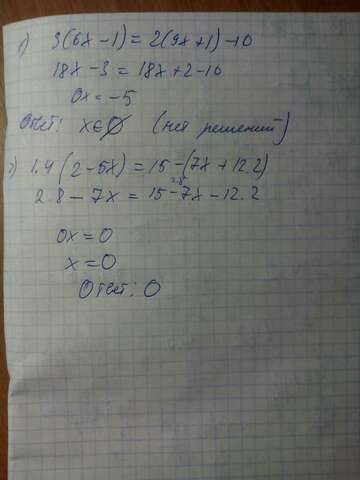 1) 3(6x-1) = 2(9x+1)-10
18x-3 = 18x+2-10
0x = -5
Ответ: x∈∅ (нет решений)
2) 1.4(2-5x) = 15-(7x+12.2)
2.8-7x = 15-7x-12.2
0x = 0
x = 0
Ответ: 0